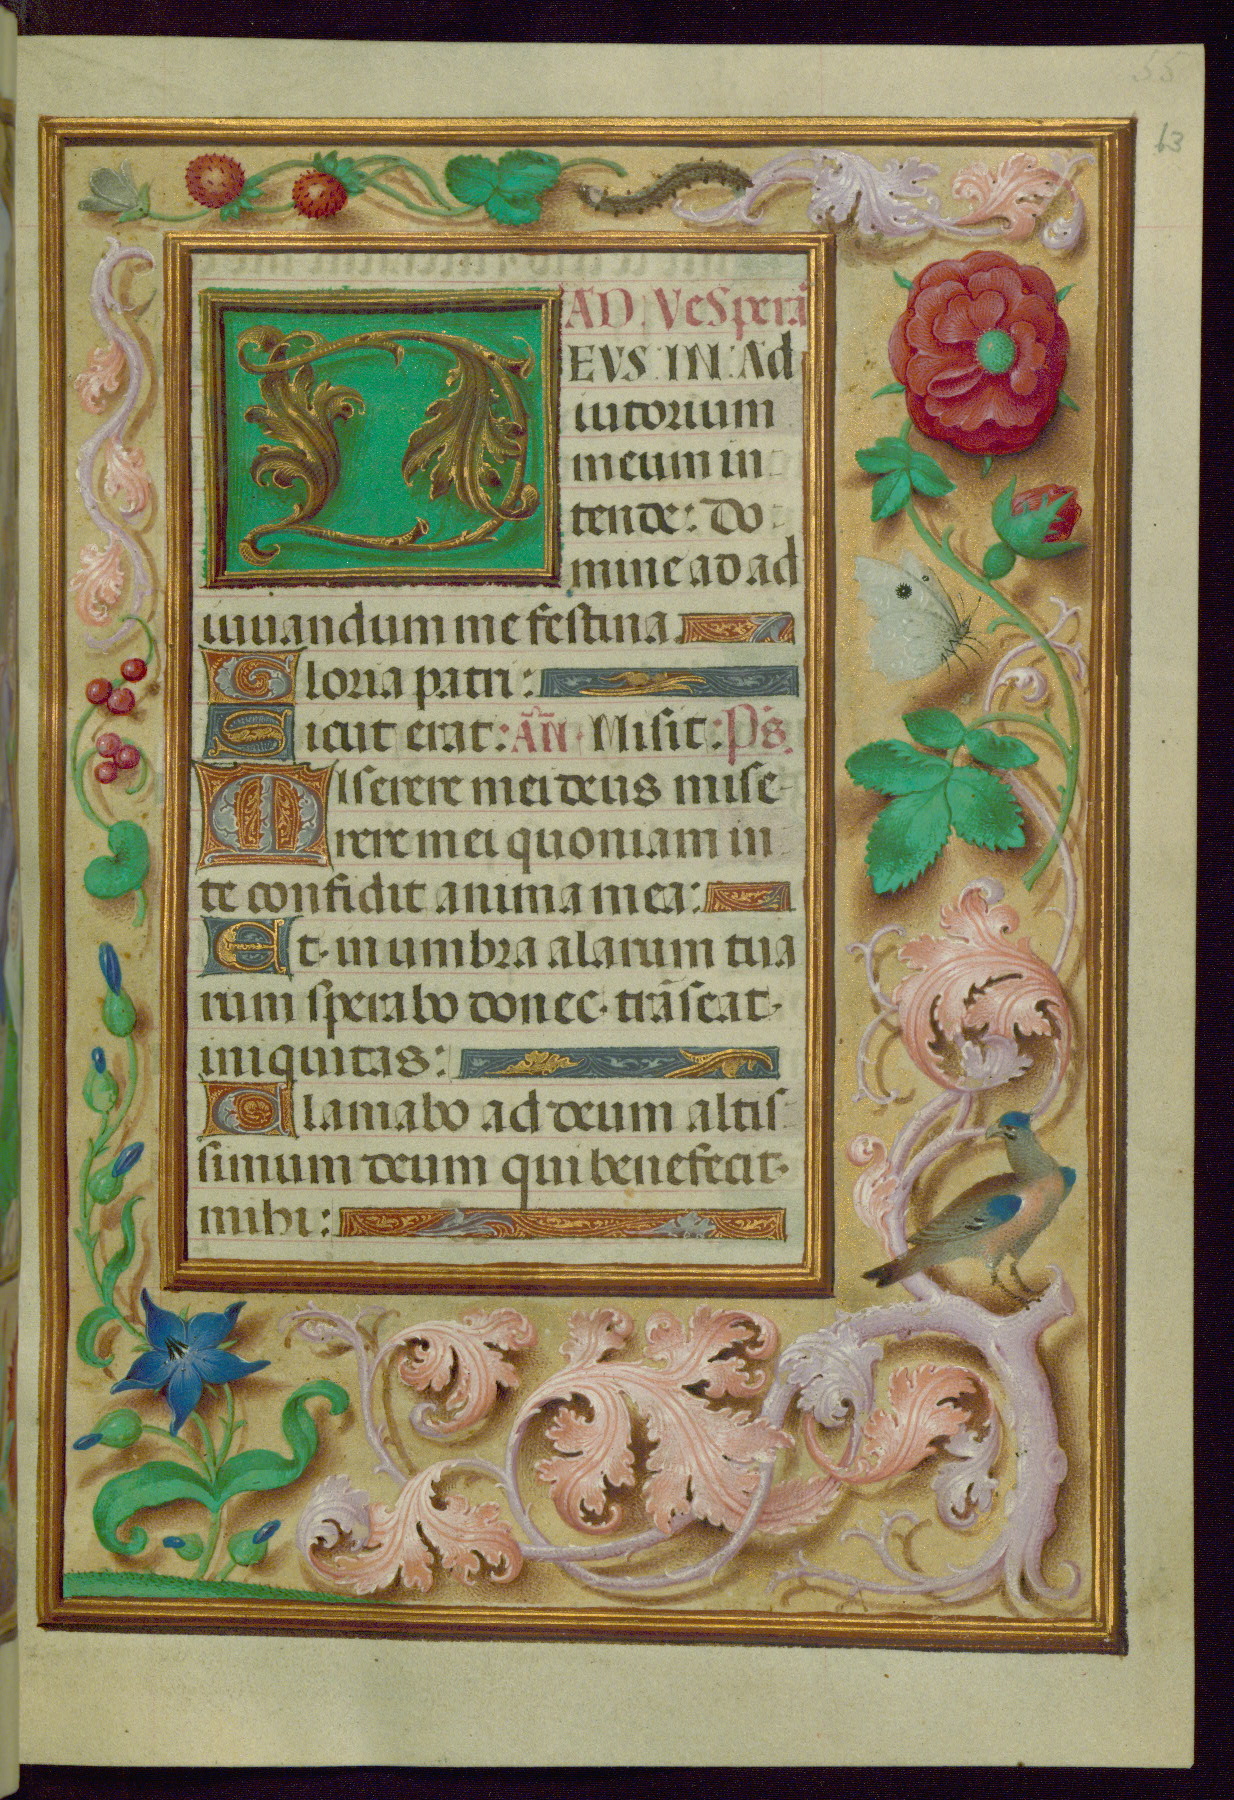 55
63
AD VeSperā
DEVS IN Ad
iutorium
meum in
tende: Do
mine ad ad
iuuandum me festina
Gloria patri:
Sicut erat: AÑ Misit: Ps.
Miserere mei deus mise-
rere mei quoniam in
te confidit anima mea:
Et in umbra alarum tua
rum sperabo donec trāseat
iniquitas:
Clamabo ad deum altis-
simum deum qui benefecit
mihi: